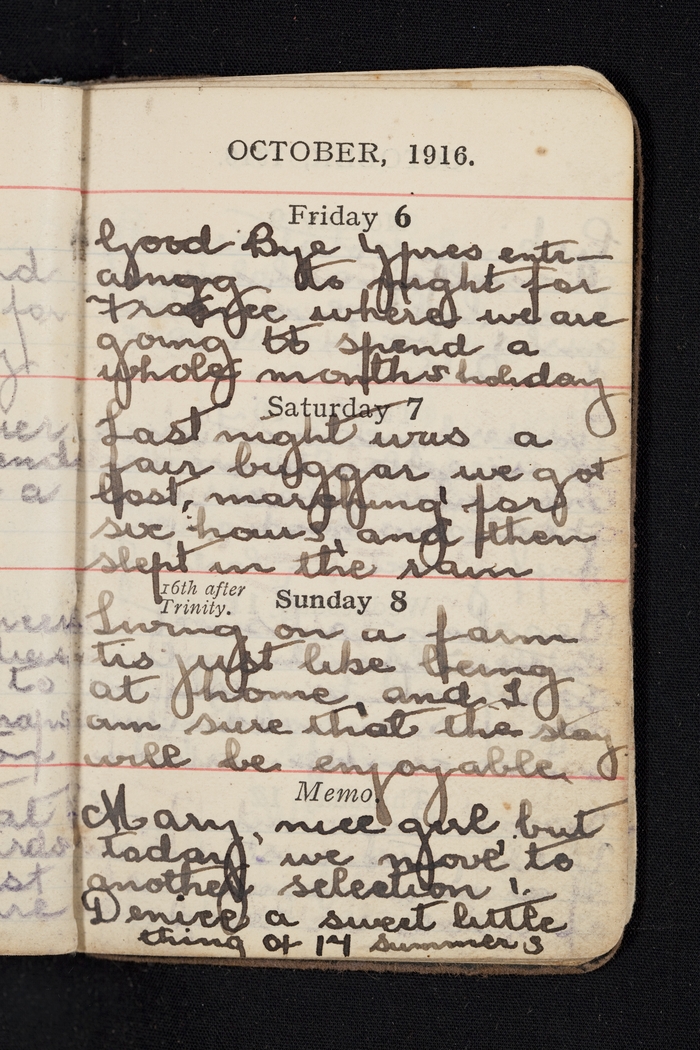 OCTOBER, 1916.
Friday 6
Good Bye Ypres entr-
aining to night for
France where we are
going to spend a
whole months holiday
Saturday 7
Last night was a
fair buggar we got
lost, marching for
six hours, and then
slept in the rain
16th after
Trinity.
Sunday 8
Living on a farm
tis just like being
at home, and I
am sure that the stay
will be enjoyable.
Memo.
Mary, nice girl but
today, we move to
another selection!.
Denice a sweet little
thing of 14 summers